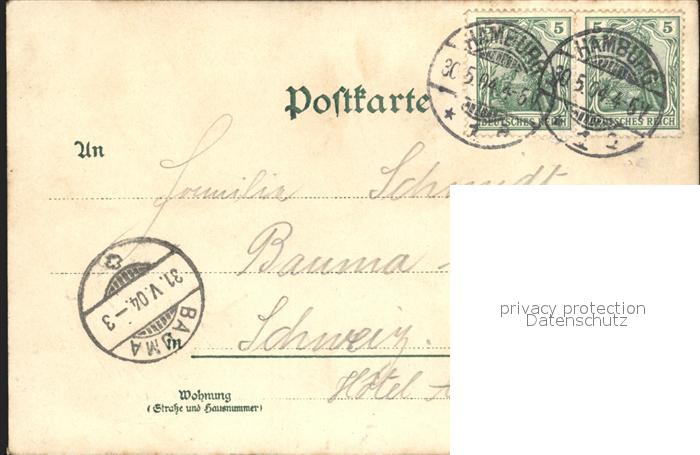 5 5
HAMBURG HAMBURG
30.5.04.4-5N 30.5.04.4-5N
DEUTSCHES REICH DEUTSCHES REICH
Postkarte
An
Familie Schmidt
Bauma -
31.V.04.-3
BAUMA
in Schweiz.
Hôtel
Wohnung
(Straße und Hausnummer)
privacy protection
Datenschutz